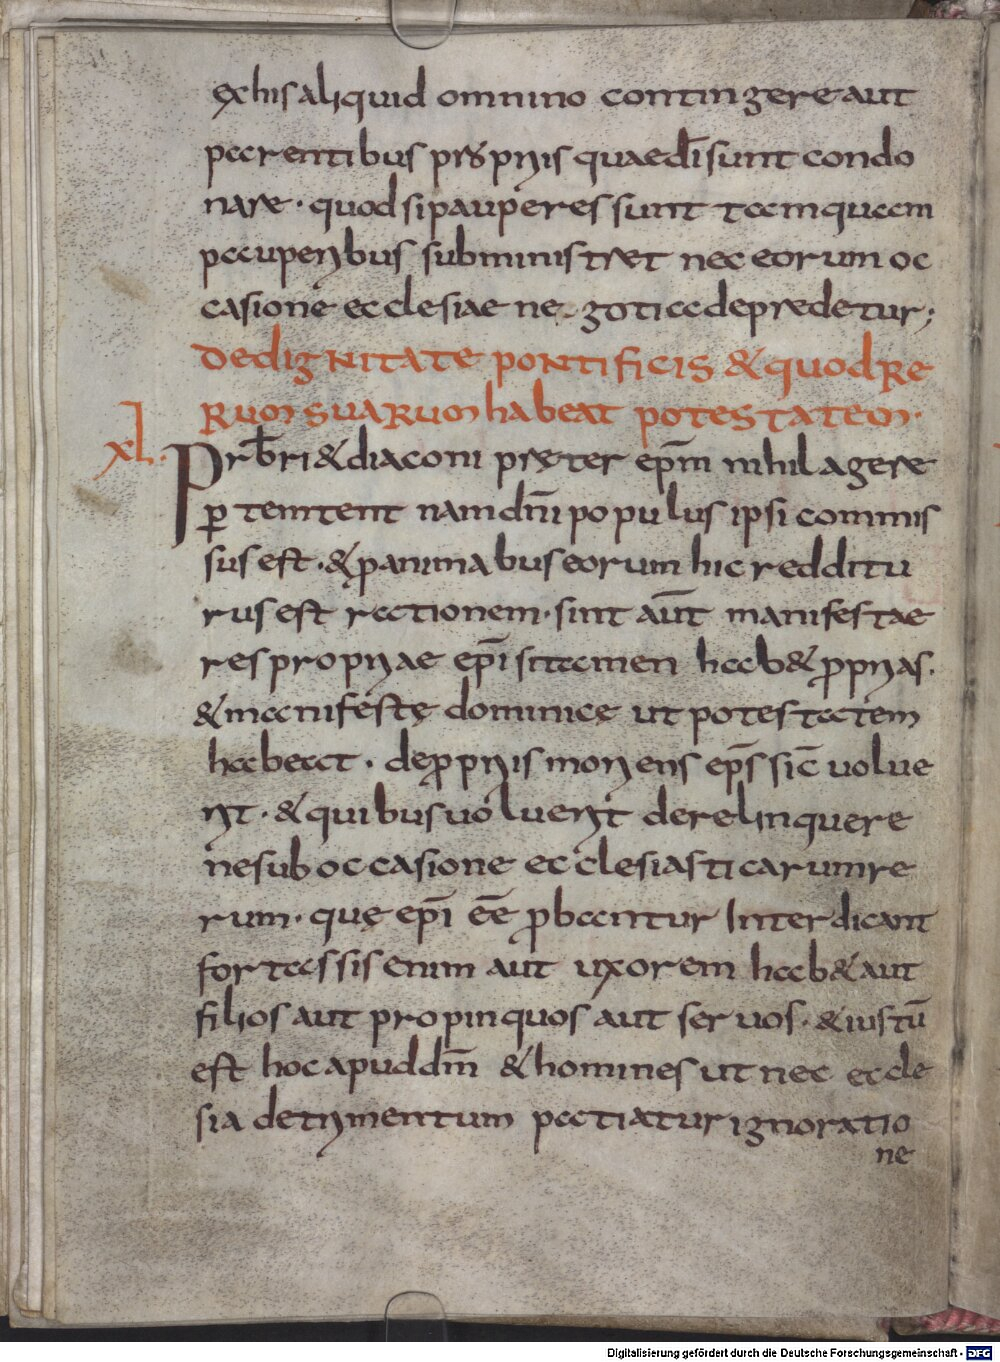 ex his aliquid omnino contingere aut
parentibus propriis quae dī sunt condo
nare · quod si pauperes sunt tamquam
pauperibus subministret nec eorum oc
casione ecclesiae negotia depredetur;
DE DIGNITATE PONTIFICIS & QUOD RE
RUM SUARUM HABEAT POTESTATEM ·
xl. Prb̄ri & diaconi preter ep̄m nihil agere
p̱ temtent nam dn̄i populus ipsi commis
sus est · & p̱ animabus eorum hic redditu
rus est rationem · sint aūt manifestae
res propriae ep̄i si tamen hab& p̱prias ·
& manifestę dominicę ut potestatem
habeat · de p̱priis moriens ep̄s sic̄ uolue
rit · & quibus uoluerit derelinquere
ne sub occasione ecclesiasticarum re
rum · quę ep̄i ēe p̱bantur interdicant
fortassis enim aut uxorem hab& aut
filios aut propinquos aut seruos · & iustū
est hoc apud dm̄ & homines ut nec eccle
sia detrimentum patiatur ignoratio
ne
Digitalisierung gefördert durch die Deutsche Forschungsgemeinschaft - DFG